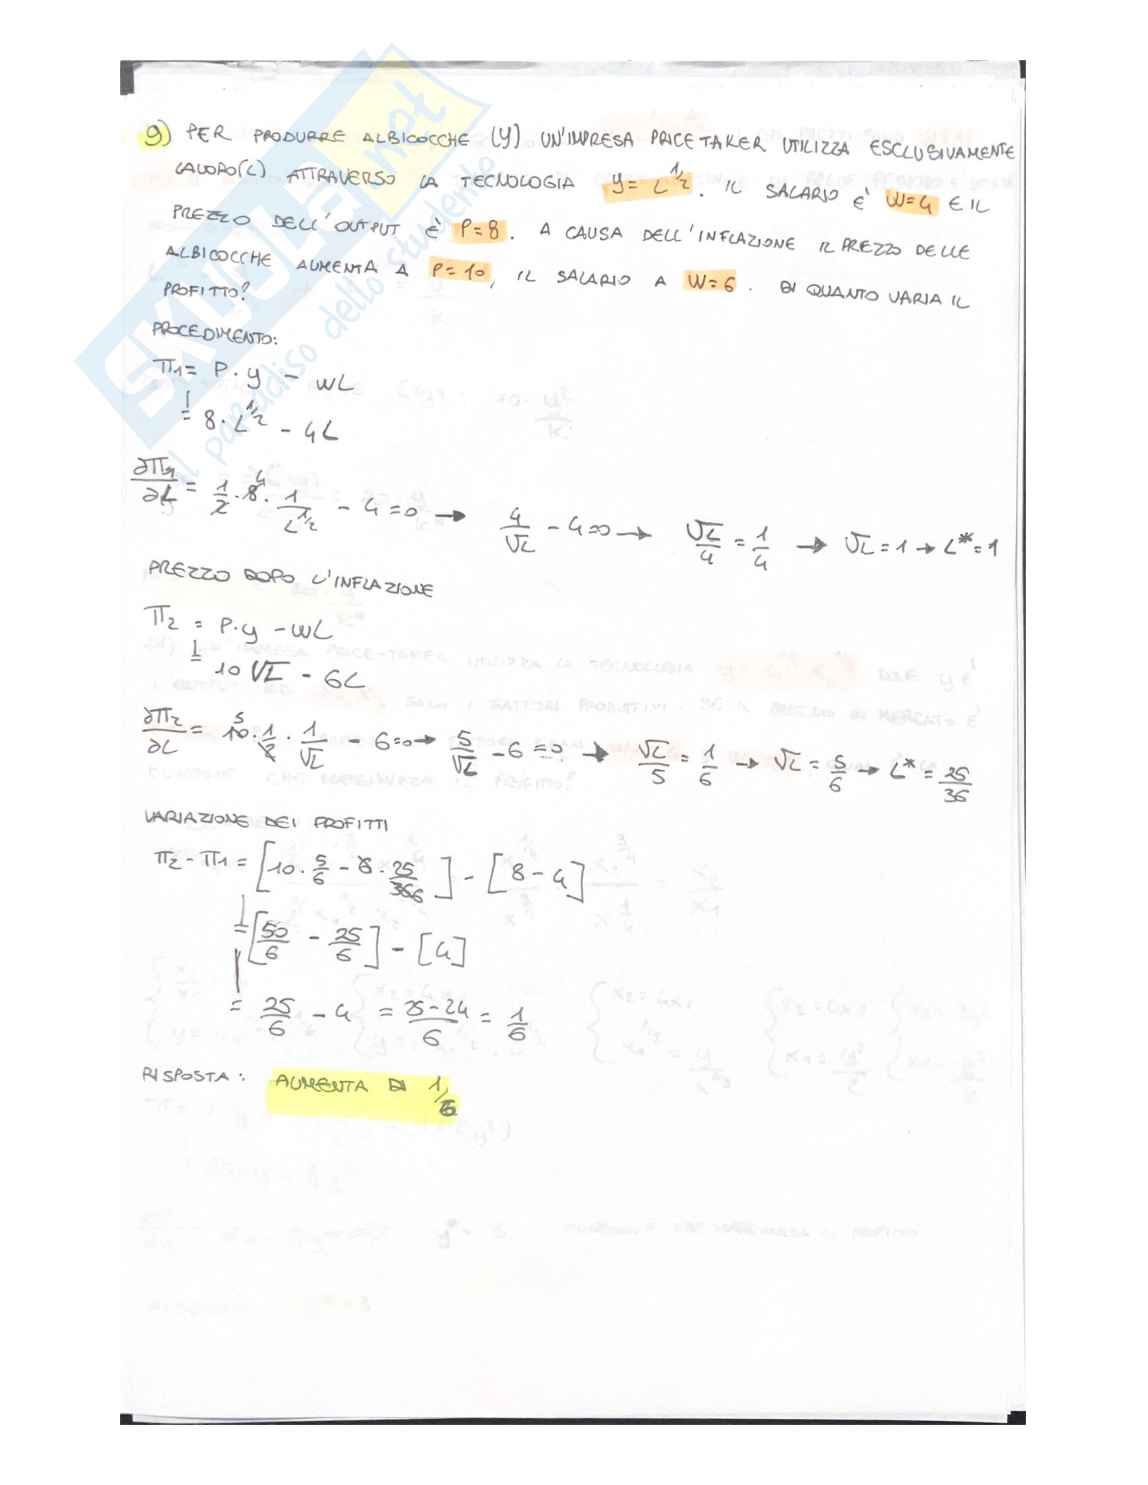 9) PER PRODURRE ALBICOCCHE (Y) UN'IMPRESA PRICE TAKER UTILIZZA ESCLUSIVAMENTE
LAVORO (L) ATTRAVERSO LA TECNOLOGIA y = L^1/2. IL SALARIO E' W=4 E IL
PREZZO DELL'OUTPUT È P=8. A CAUSA DELL'INFLAZIONE IL PREZZO DELLE
ALBICOCCHE AUMENTA A P=10, IL SALARIO A W=6. DI QUANTO VARIA IL
PROFITTO?
PROCEDIMENTO:
π1 = P·y - wL
= 8·L^1/2 - 4L
∂π1/∂L = 1/2·8·1/L^1/2 - 4=0 → 4/√L - 4=0 → √L/4 = 1/4 → √L=1 → L*=1
PREZZO DOPO L'INFLAZIONE
π2 = P·y - wL
= 10√L - 6L
∂π2/∂L = 10·1/2·1/√L - 6=0 → 5/√L - 6=0 → √L/5 = 1/6 → √L = 5/6 → L* = 25/36
VARIAZIONE DEI PROFITTI
π2 - π1 = [10·5/6 - 6·25/366] - [8-4]
= [50/6 - 25/6] - [4]
= 25/6 - 4 = 25-24/6 = 1/6
RISPOSTA: AUMENTA DI 1/6
SKUOLA.net
il paradiso dello studente